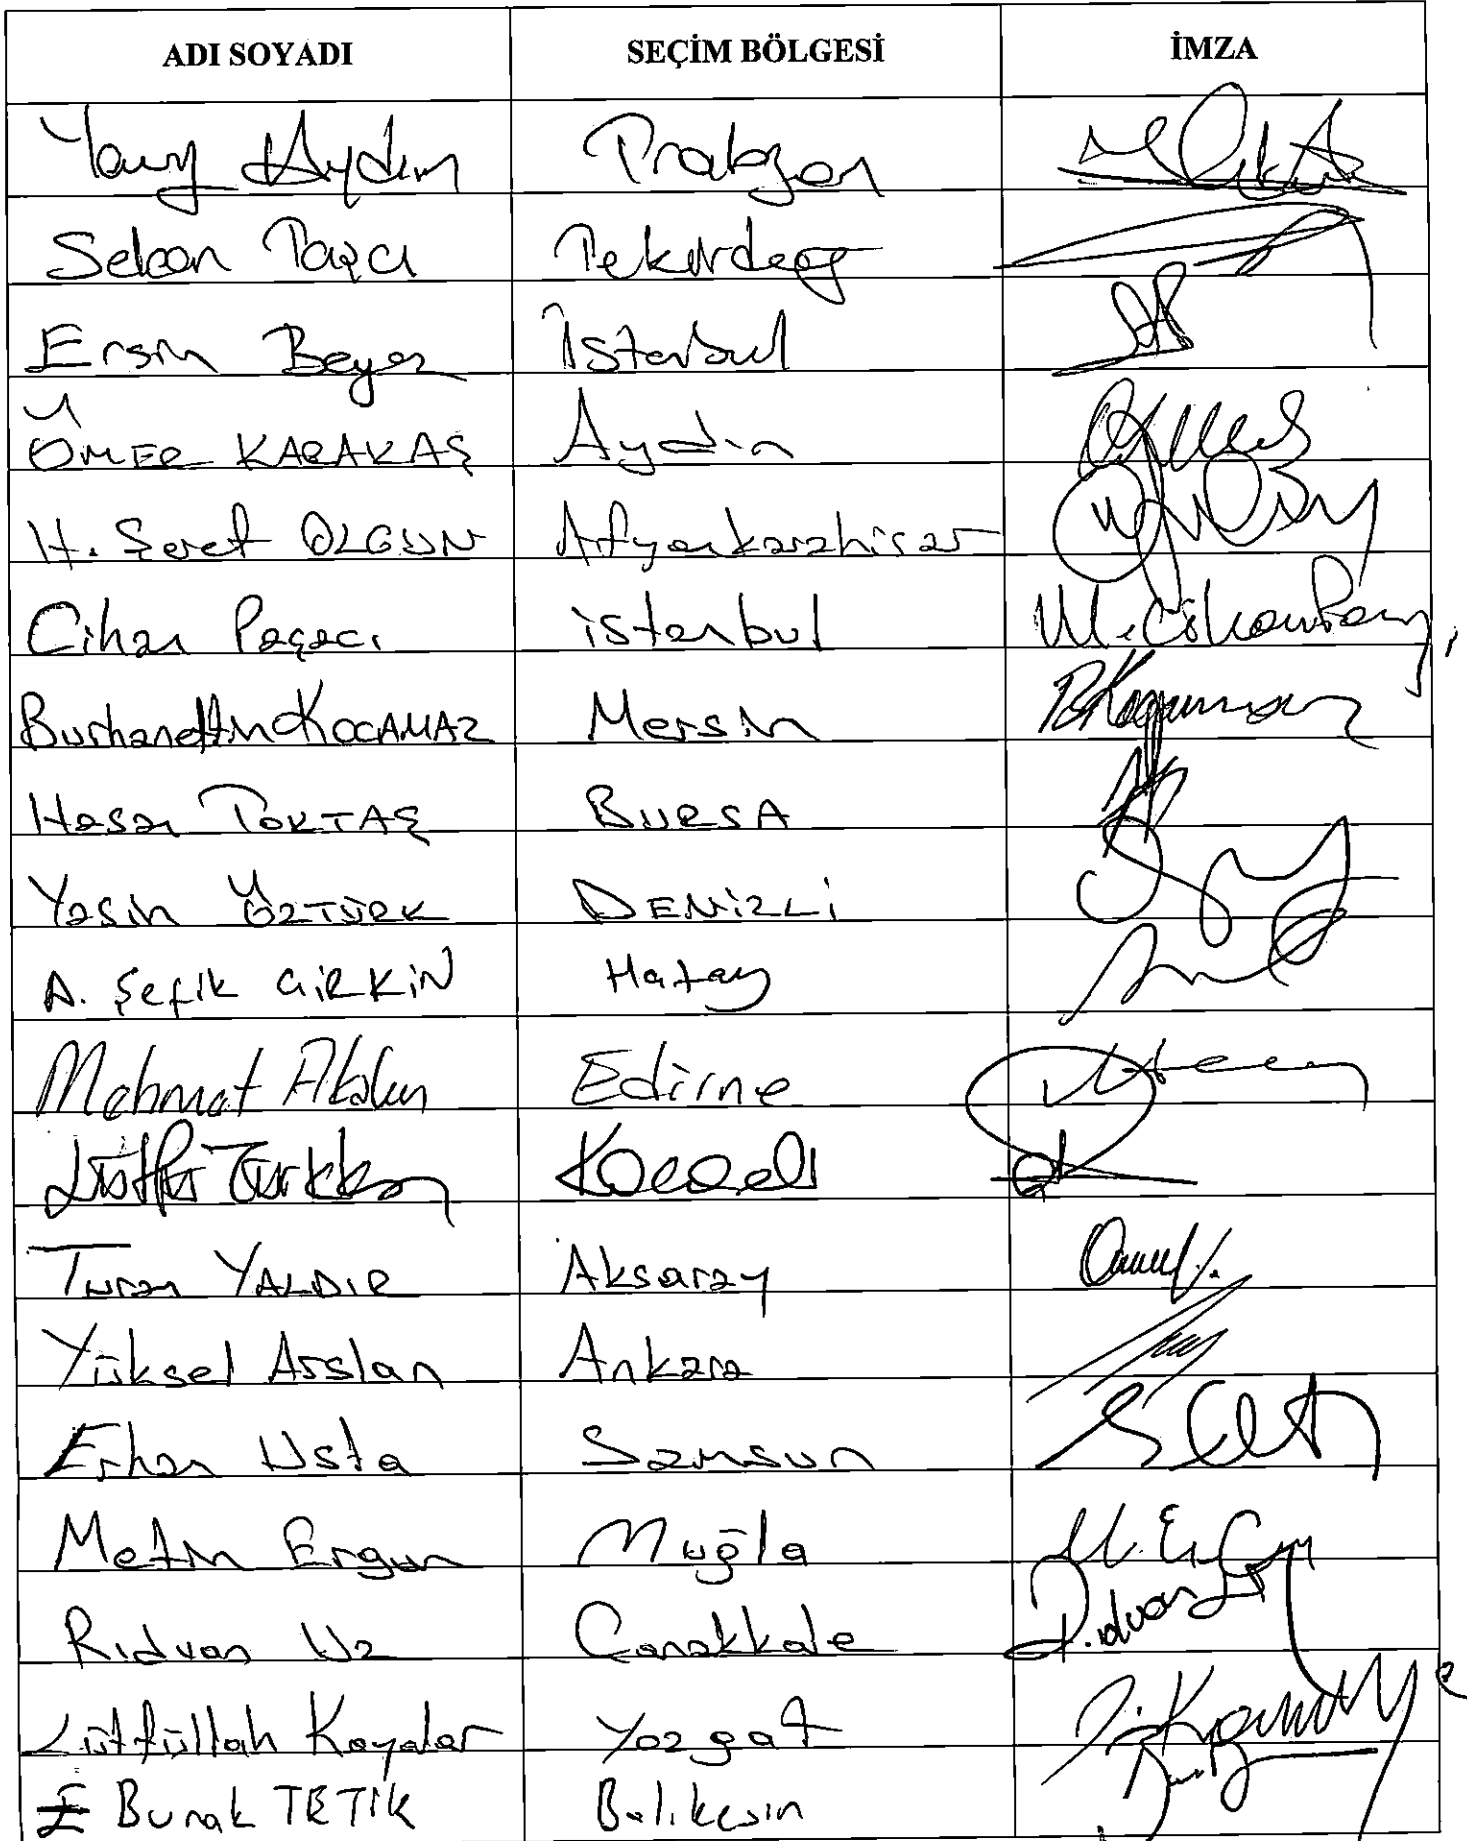 ADI SOYADI SEÇİM BÖLGESİ İMZA
Yavuz Aydın Trabzon
Selcan Taşcı Tekirdağ
Ersin Beyaz İstanbul
ÖMER KARAKAŞ Aydın
H. Şeref OLGUN Afyonkarahisar
Cihan Paçacı istanbul
Burhanettin KOCAMAZ Mersin
Hasan TOKTAŞ BURSA
Yasin ÖZTÜRK DENİZLİ
A. Şefik GİRKİN Hatay
Mehmet Akalın Edirne
Lütfü Türkkan Kocaeli
Turan YALDIR Aksaray
Yüksel Arslan Ankara
Erhan Usta Samsun
Metin Ergun Muğla
Rıdvan Uz Çanakkale
Lütfüllah Kayalar Yozgat
Burak TETİK Balıkesir